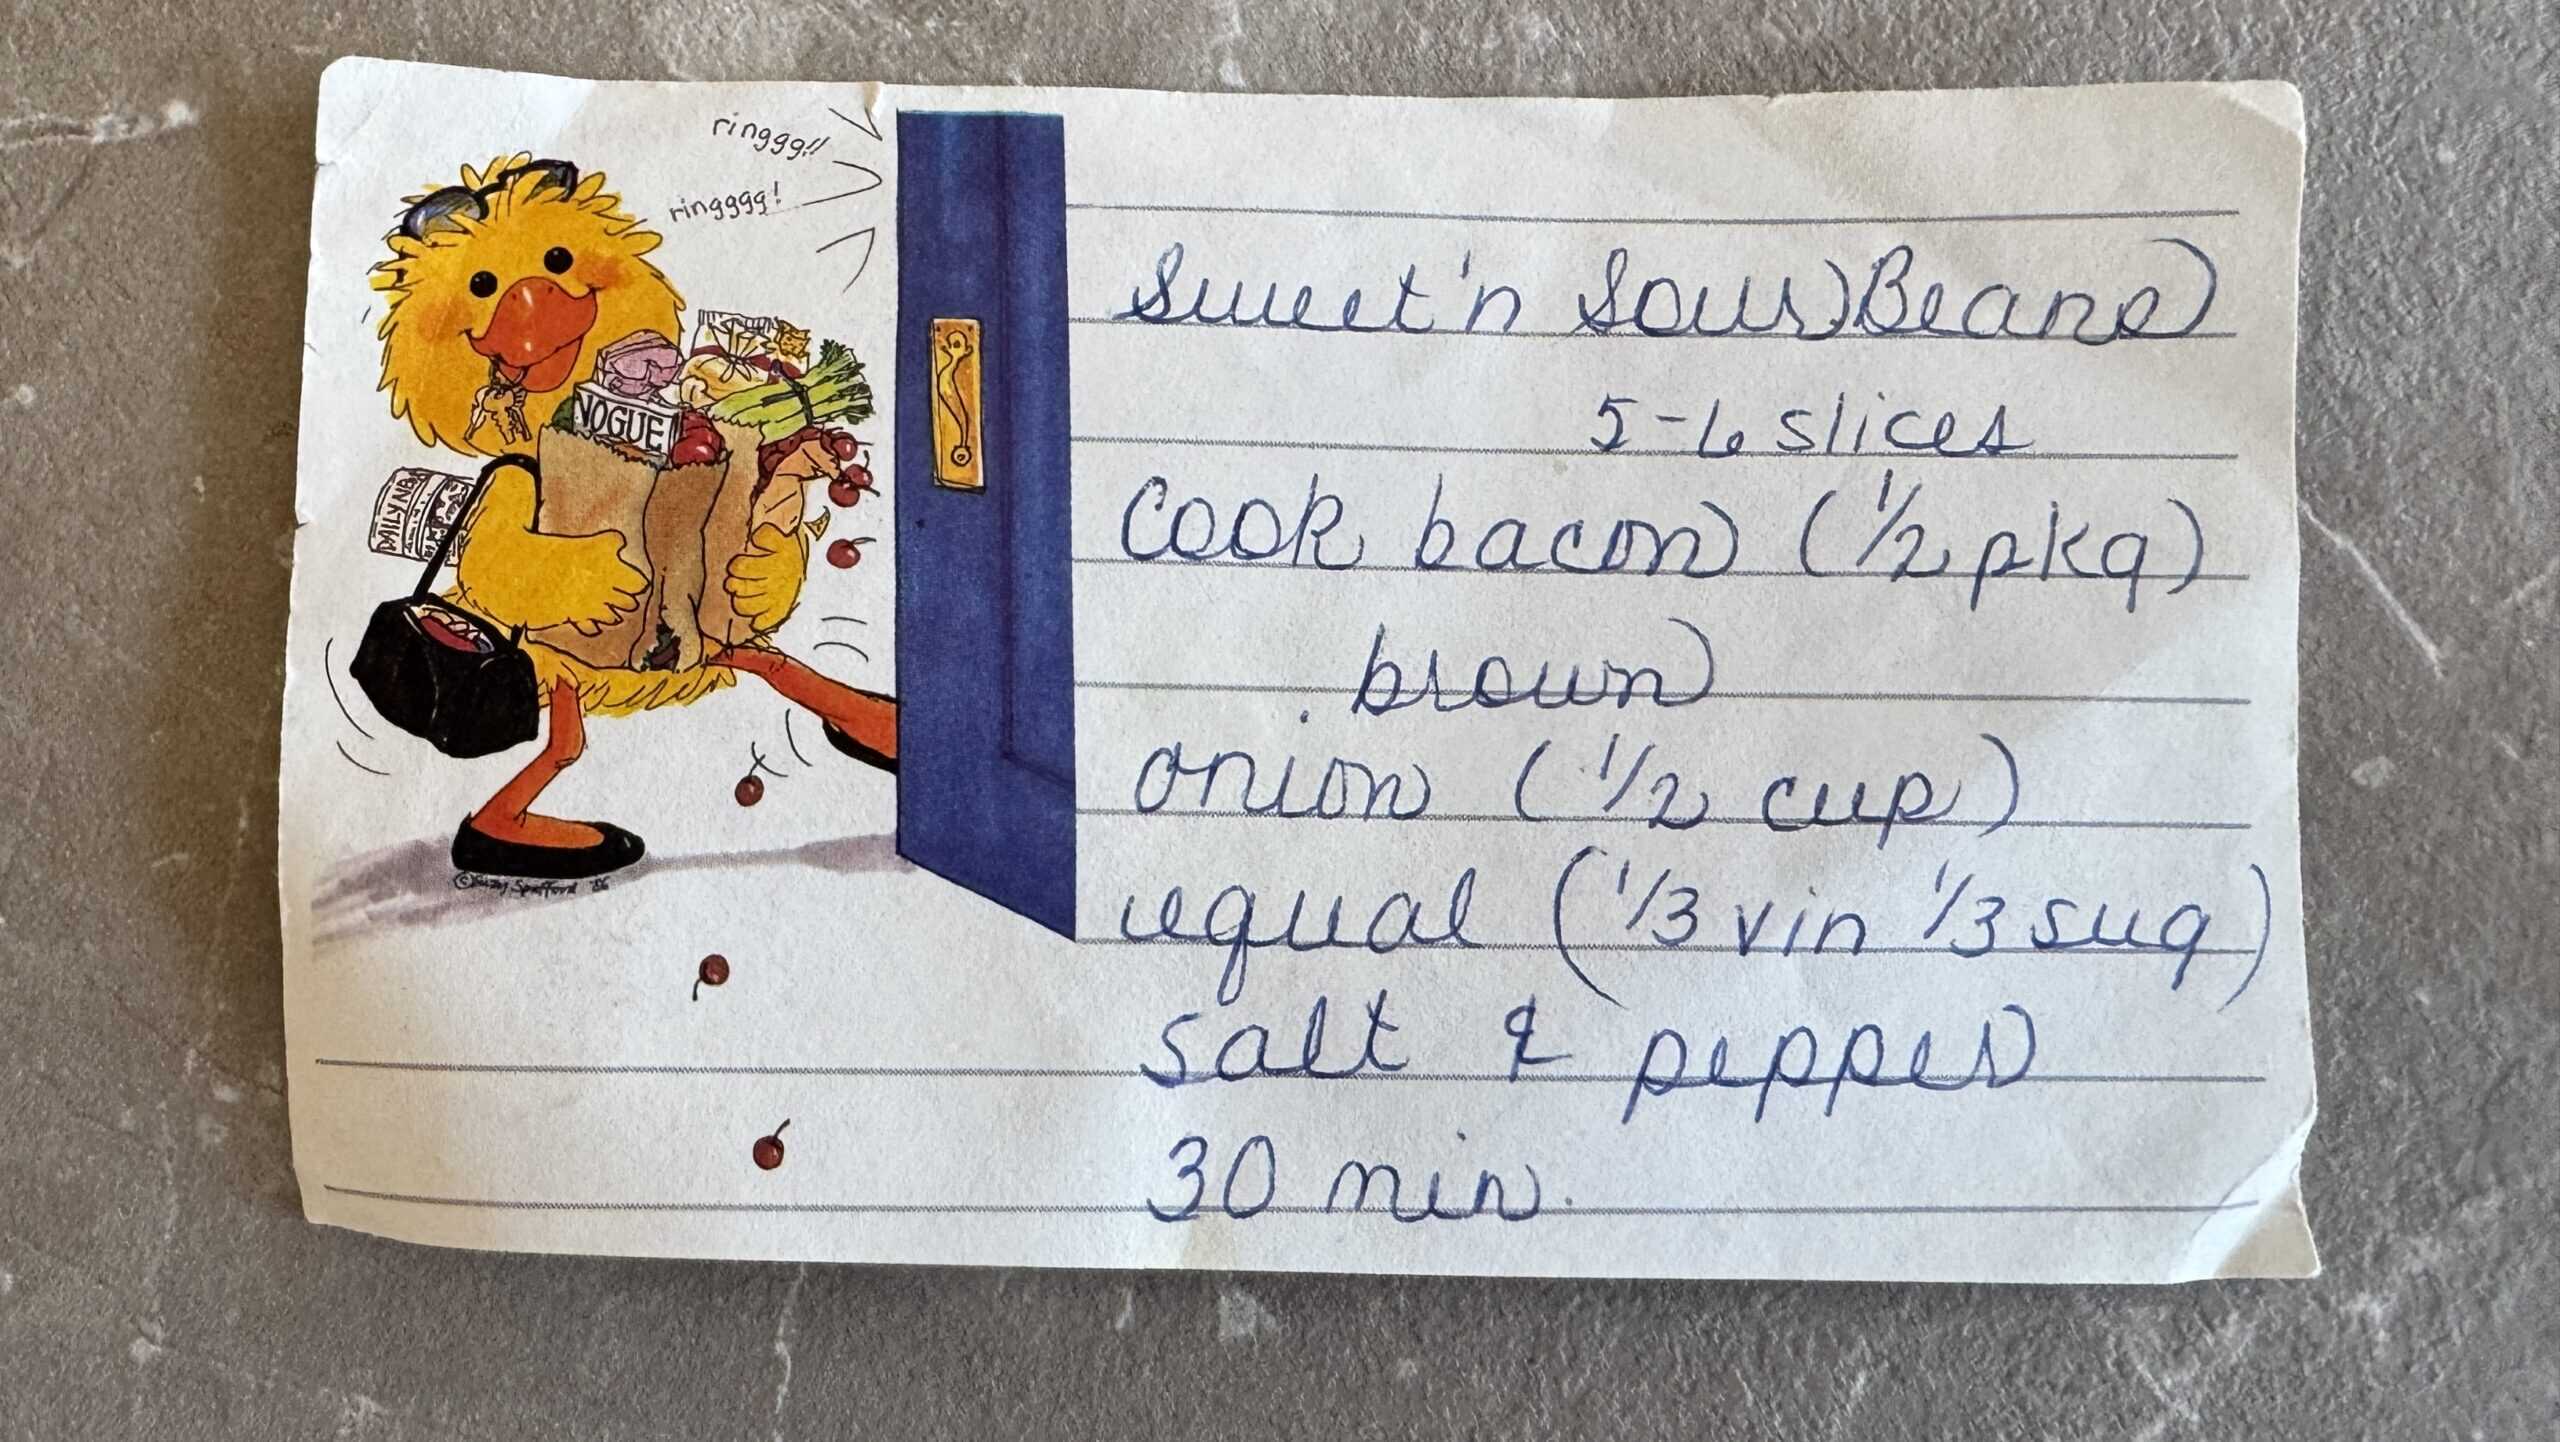 ringgg!!
ringggg!
VOGUE
DAILY NE
© Suzy Spafford '86
Sweet 'n Sour Beans
5-6 slices
Cook bacon (1/2 pkg)
brown
onion (1/2 cup)
equal (1/3 vin 1/3 sug)
salt & pepper
30 min.